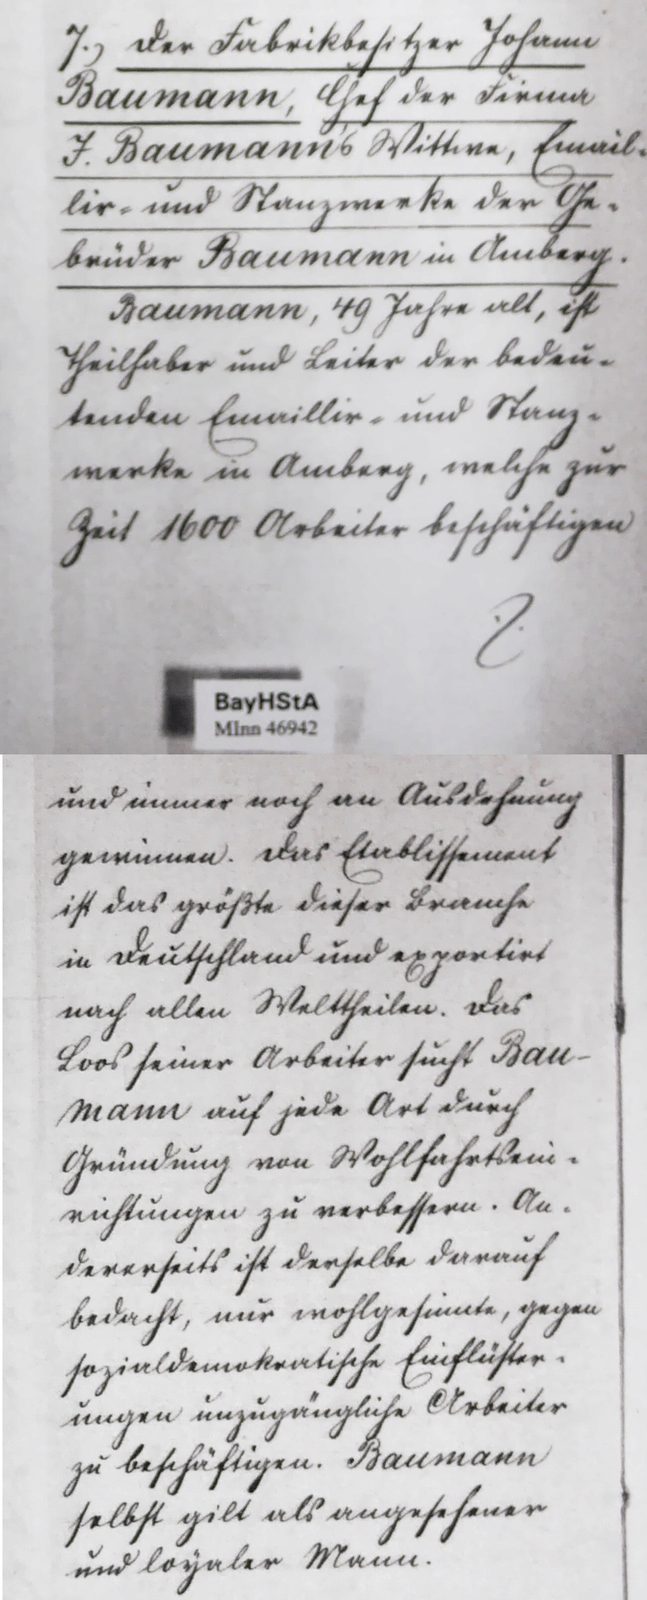 7.) Der Fabrikbesitzer Johann
Baumann, Chef der Firma
J. Baumann's Wittwe, Email-
lir- und Stanzwerke der Ge-
brüder Baumann in Amberg.
Baumann, 49 Jahre alt, ist
Theilhaber und Leiter der bedeu-
tenden Emaillir- und Stanz-
werke in Amberg, welche zur
Zeit 1600 Arbeiter beschäftigen
BayHStA
MInn 46942
und immer noch an Ausdehnung
gewinnen. Das Etablissement
ist das größte dieser Branche
in Deutschland und exportirt
nach allen Welttheilen. Das
Loos seiner Arbeiter sucht Bau-
mann auf jede Art durch
Gründung von Wohlfahrtsein-
richtungen zu verbessern. An-
dererseits ist derselbe darauf
bedacht, nur wohlgesinnte, gegen
sozialdemokratische Einflüster-
ungen unzugängliche Arbeiter
zu beschäftigen. Baumann
selbst gilt als angesehener
und loyaler Mann.